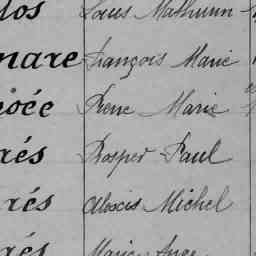 los Louis Mathurin
nare François Marie
oée Pierre Marie
rés Prosper Paul
rés Alexis Michel
rés Marie Ange